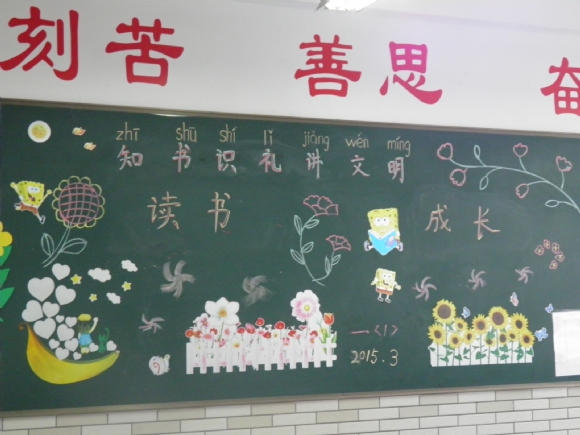 刻苦 善思 奋
zhī shū shí lǐ jiǎng wén míng
知书识礼讲文明
读书 成长
一〈1〉
2015.3